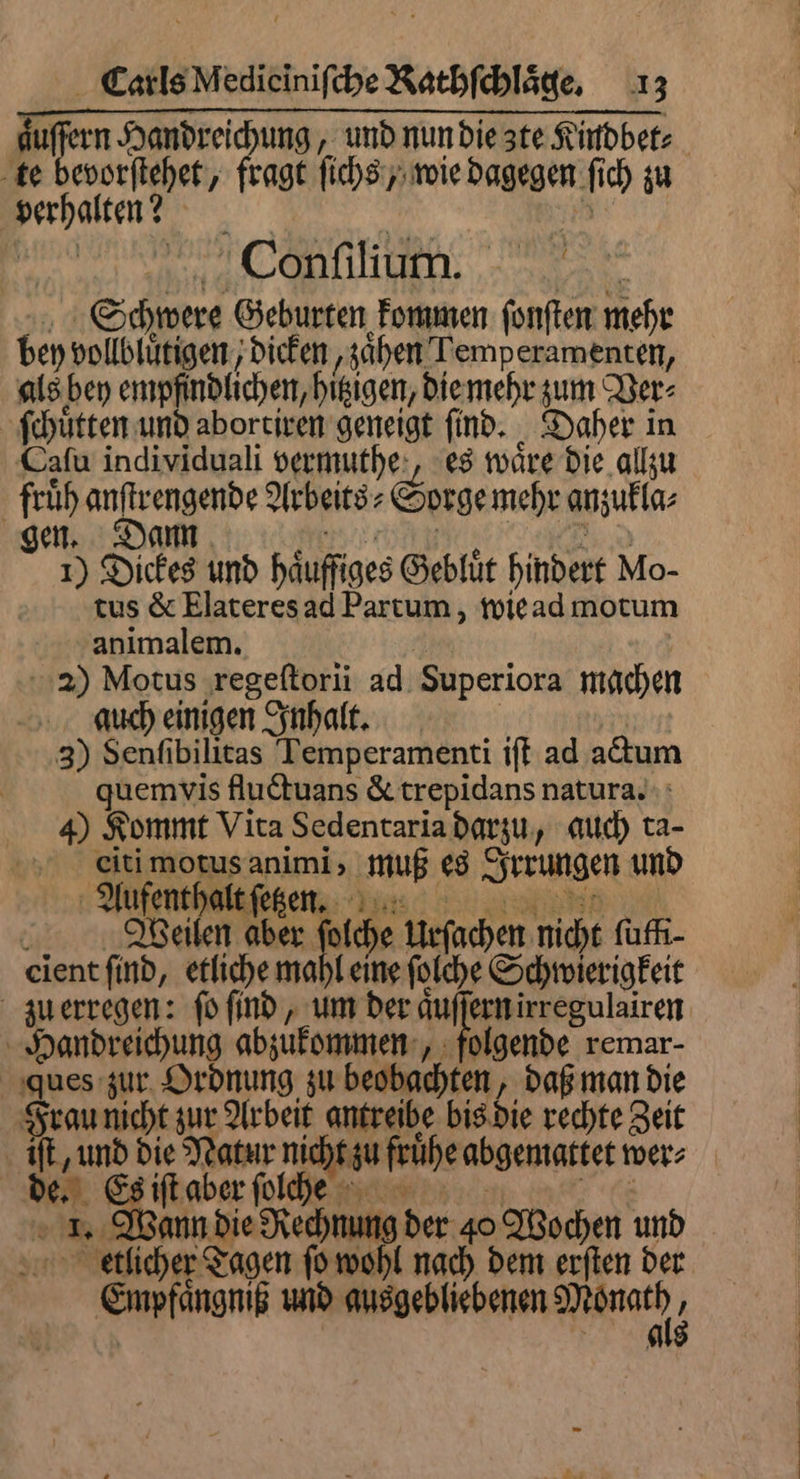 Carls Mediciniſche Rathſchlaͤge. 13
aͤuſſern Handreichung, und nun die 3te Kindbet⸗
te bevorſtehet, fragt ſichs, wie dagegen ſich zu
verhalten?
Conſilium.
Schwere Geburten kommen ſonſten mehr
bey vollbluͤtigen, dicken, zaͤhen Temperamenten,
als bey empfindlichen, hitzigen, die mehr zum Ver⸗
ſchuͤtten und abortiren geneigt ſind. Daher in
Caſu individuali vermuthe, es waͤre die allzu
fruͤh anſtrengende Arbeits⸗Sorge mehr anzukla⸗
gen. Dann
1) Dickes und haͤuffiges Gebluͤt hindert Mo-
tus & Elateres ad Partum, wie ad motum
animalem.
2) Motus regeſtorii ad Superiora machen
auch einigen Inhalt.
3) Senſibilitas Temperamenti iſt ad actum
quemvis fluctuans & trepidans natura.
4) Kommt Vita Sedentaria darzu, auch ta-
citi motus animi, muß es Irrungen und
Aufenthalt ſetzen.
Weilen aber ſolche Urſachen nicht ſuffi-
cient ſind, etliche mahl eine ſolche Schwierigkeit
zu erregen: ſo ſind, um der aͤuſſern irregulairen
Handreichung abzukommen, folgende remar-
ques zur Ordnung zu beobachten, daß man die
Frau nicht zur Arbeit antreibe bis die rechte Zeit
iſt, und die Natur nicht zu fruͤhe abgemattet wer⸗
de. Es iſt aber ſolche
1. Wann die Rechnung der 40 Wochen und
etlicher Tagen ſo wohl nach dem erſten der
Empfaͤngniß und ausgebliebenen Monath,
als